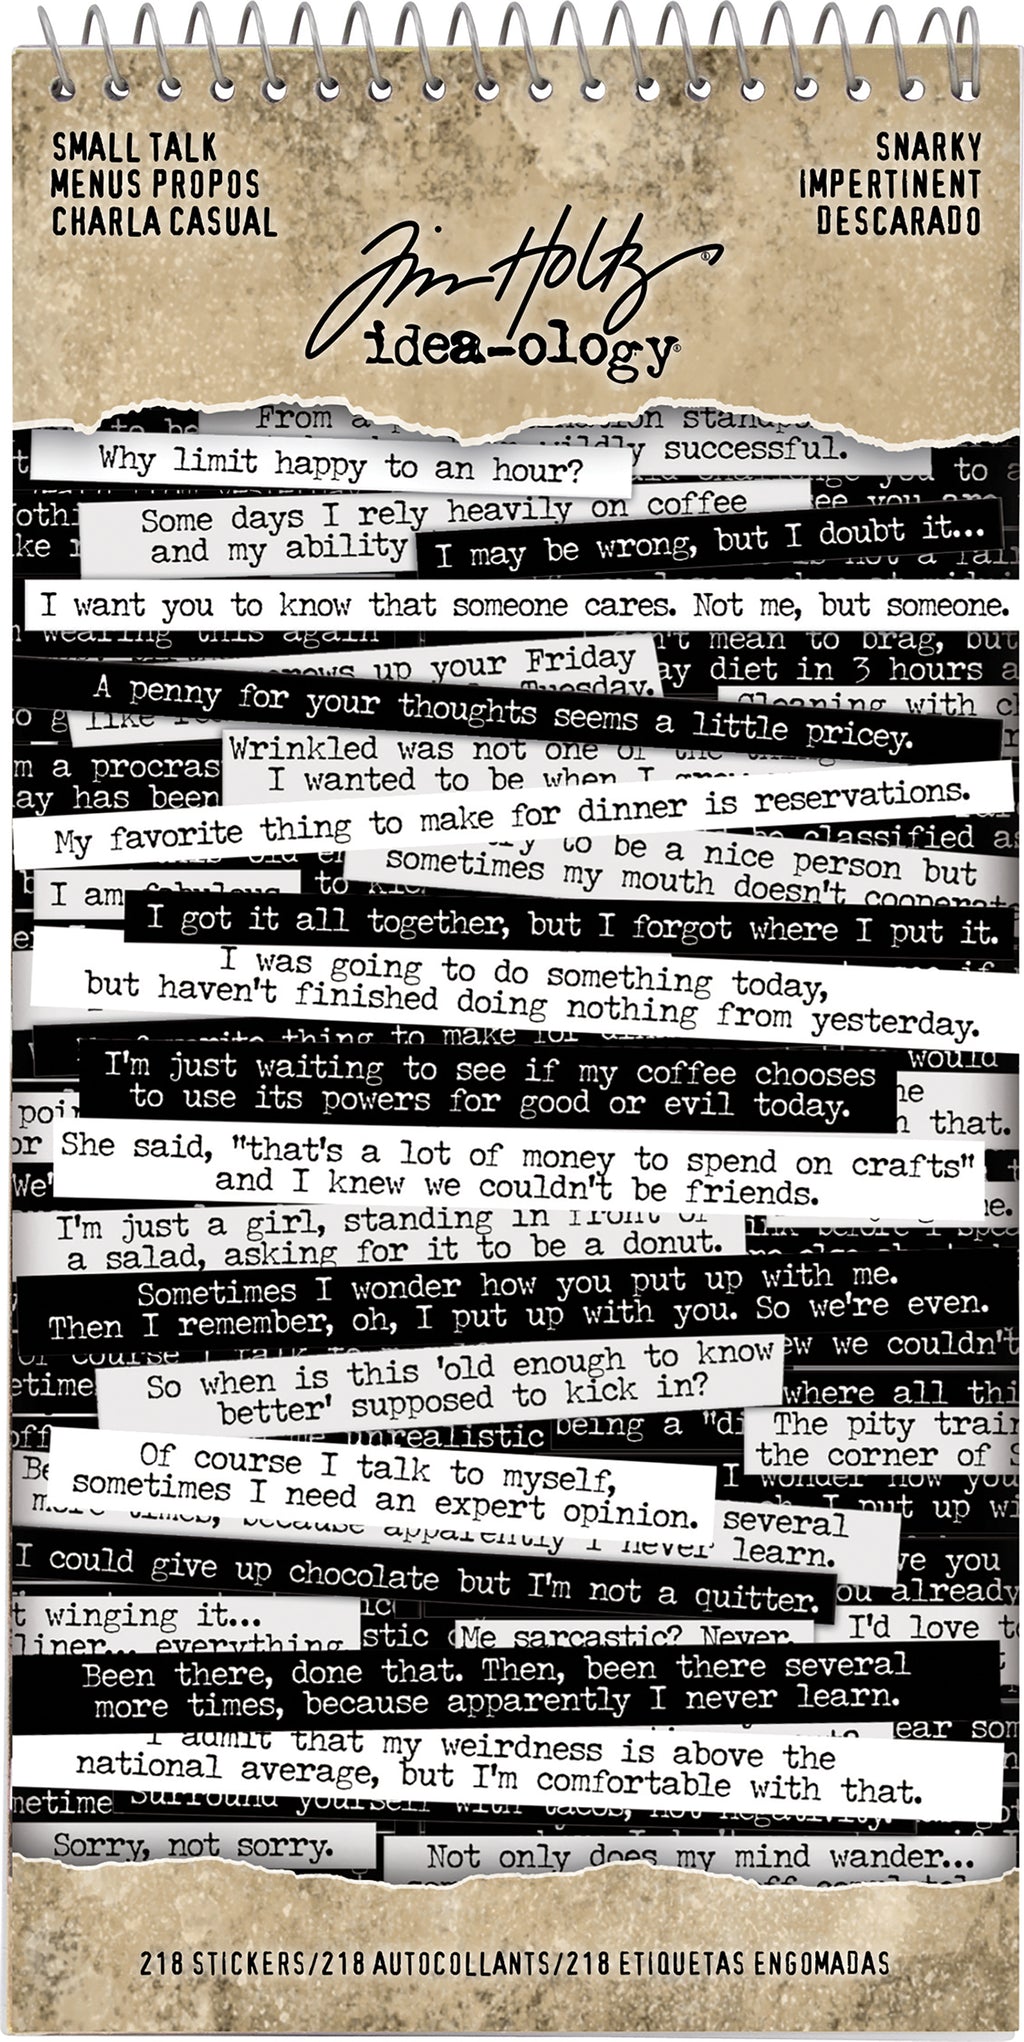 SMALL TALK
MENUS PROPOS
CHARLA CASUAL
SNARKY
IMPERTINENT
DESCARADO
Tim Holtz®
idea-ology®
to be
From a
stand
wildly successful.
Why limit happy to an hour?
you to
Some days I rely heavily on coffee
and my ability
see you are
I may be wrong, but I doubt it...
not a
I want you to know that someone cares. Not me, but someone.
wearing this again
mean to brag, but
diet in 3 hours
up your Friday
Tuesday.
Cleaning with
A penny for your thoughts seems a little pricey.
like
Wrinkled was not one of the
I wanted to be when I
m a procras
has been
My favorite thing to make for dinner is reservations.
classified
to be a nice person but
sometimes my mouth doesn't cooperate
I am fabulous
to
I got it all together, but I forgot where I put it.
I was going to do something today,
but haven't finished doing nothing from yesterday.
thing to make for
would
I'm just waiting to see if my coffee chooses
to use its powers for good or evil today.
that.
or
She said, "that's a lot of money to spend on crafts"
and I knew we couldn't be friends.
We'
I'm just a girl, standing in front of
a salad, asking for it to be a donut.
before I
Sometimes I wonder how you put up with me.
Then I remember, oh, I put up with you. So we're even.
Of course I talk to
we couldn't
So when is this 'old enough to know
better' supposed to kick in?
etime
where all thi
unrealistic
being a "di
The pity train
the corner of
Of course I talk to myself,
sometimes I need an expert opinion.
I wonder how you
I put up wi
several
more times, because apparently I never learn.
I could give up chocolate but I'm not a quitter.
you
already
t winging it...
liner... everything
stic
Me sarcastic? Never.
I'd love to
Been there, done that. Then, been there several
more times, because apparently I never learn.
ear som
I admit that my weirdness is above the
national average, but I'm comfortable with that.
metime
Surround yourself with tacos, not negativity.
Sorry, not sorry.
Not only does my mind wander...
218 STICKERS/218 AUTOCOLLANTS/218 ETIQUETAS ENGOMADAS